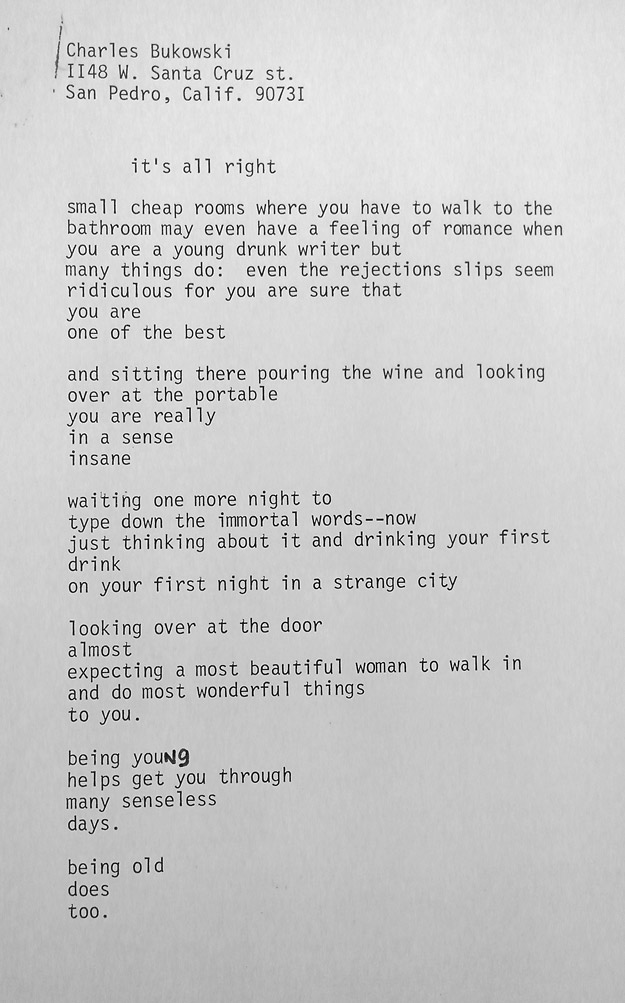 Charles Bukowski
II48 W. Santa Cruz st.
San Pedro, Calif. 9073I
it's all right
small cheap rooms where you have to walk to the
bathroom may even have a feeling of romance when
you are a young drunk writer but
many things do:  even the rejections slips seem
ridiculous for you are sure that
you are
one of the best
and sitting there pouring the wine and looking
over at the portable
you are really
in a sense
insane
waiting one more night to
type down the immortal words--now
just thinking about it and drinking your first
drink
on your first night in a strange city
looking over at the door
almost
expecting a most beautiful woman to walk in
and do most wonderful things
to you.
being youNg
helps get you through
many senseless
days.
being old
does
too.